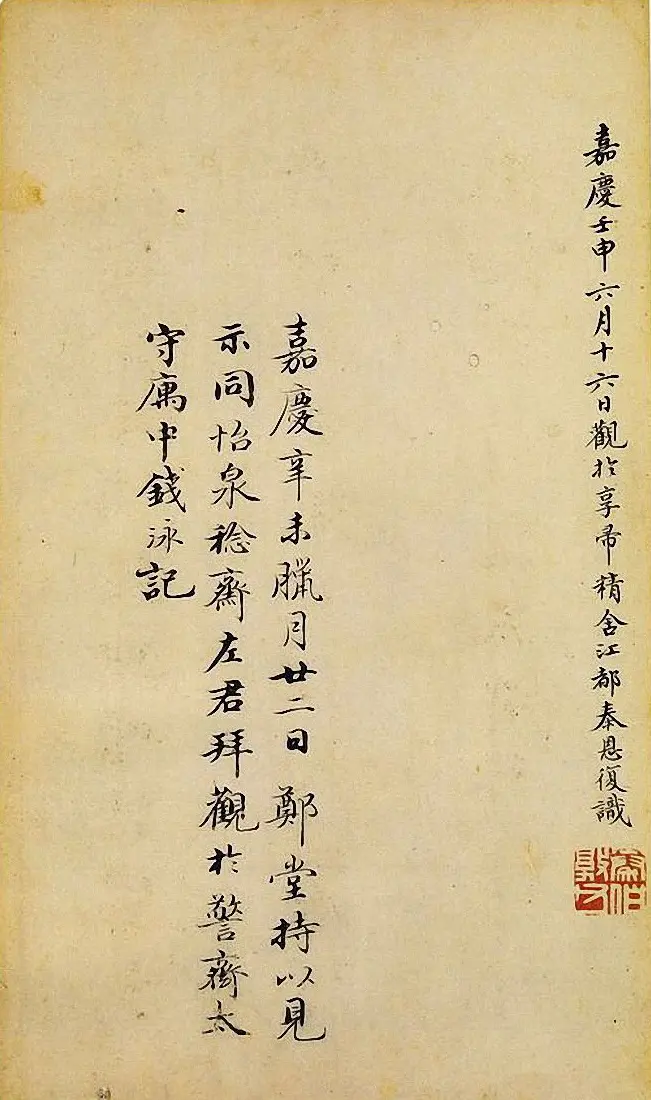 嘉慶壬申六月十六日觀於享帚精舍江都秦恩復識
嘉慶辛未臘月廿二日鄭堂持以見
示同怡泉稔齋左君拜觀於警齋太
守廡中錢泳記